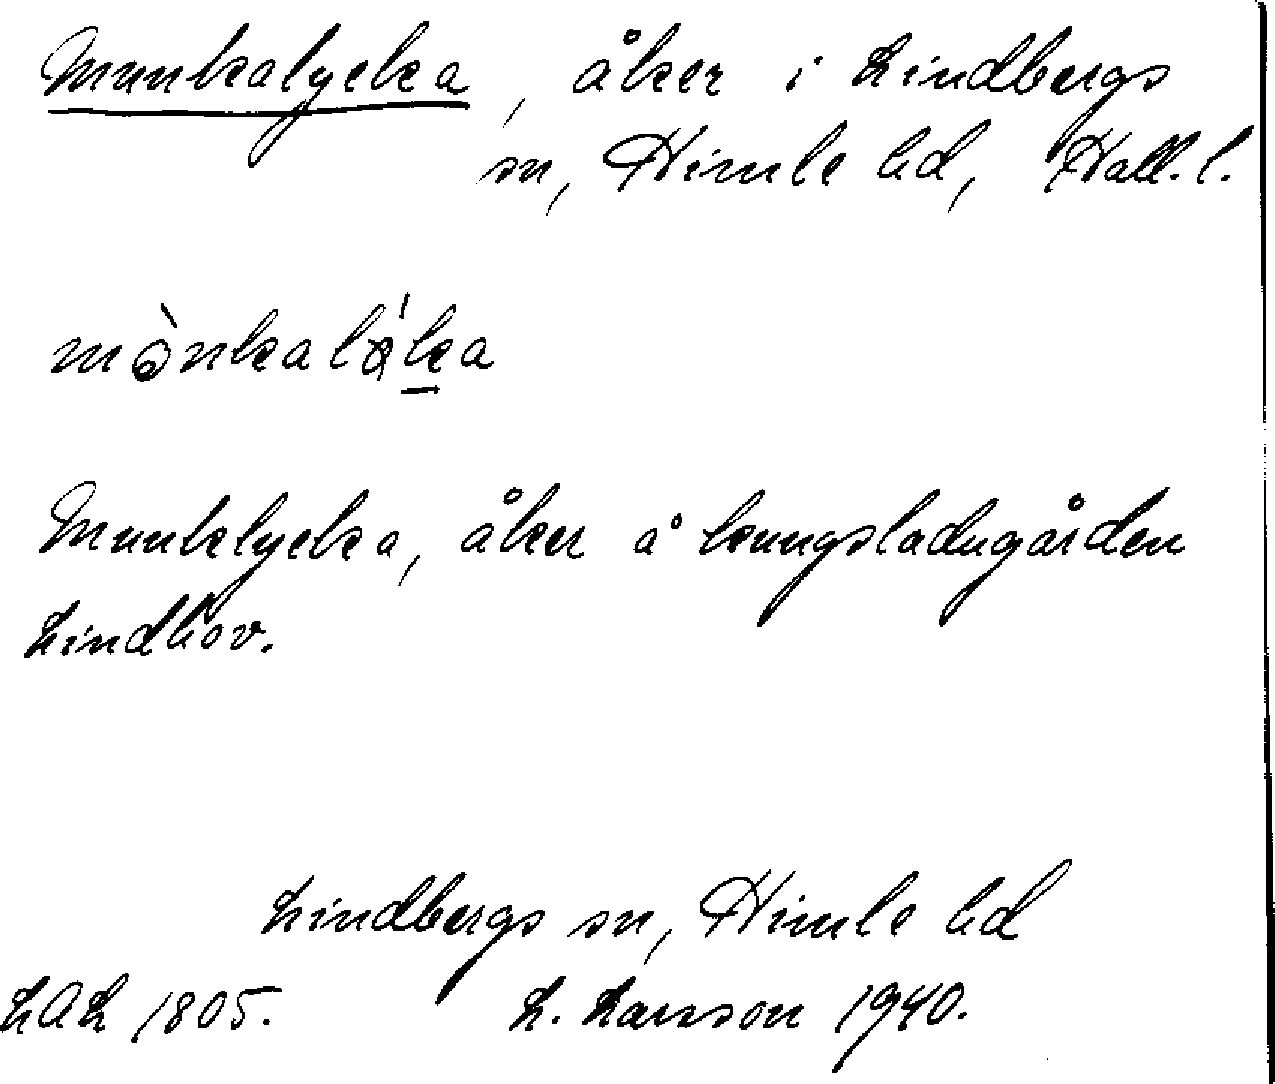 Munkalycka, åker i Lindbergs
sn, Himle hd, Hall. l.
Munklycka, åker å kungsladugården
Lindhov.
Lindbergs sn, Himle hd
1805. L. Larsson 1940.